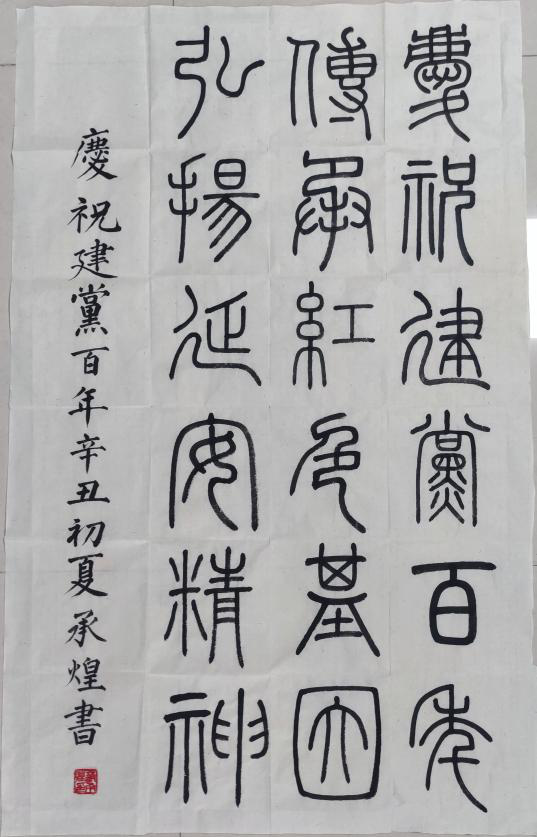 慶祝建黨百年
傳承紅色基因
弘揚延安精神
慶祝建黨百年辛丑初夏承煌書